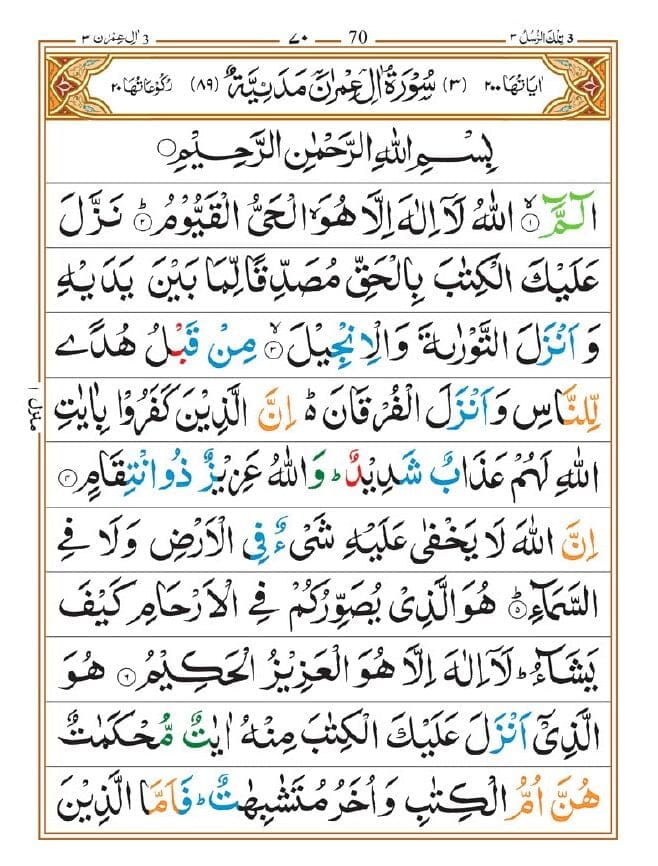 3 تِلْكَ الرُّسُلُ ٣ 70 ٧٠ 3 اٰلِ عِمْرٰن ٣
اٰيَاتُهَا ٢٠٠ (٣) سُوْرَةُ اٰلِ عِمْرٰنَ مَدَنِيَّةٌ (٨٩) رُكُوْعَاتُهَا ٢٠
بِسْمِ اللّٰهِ الرَّحْمٰنِ الرَّحِيْمِ
الٓمَّٓ ۙ‏﴿١﴾ اللّٰهُ لَاۤ اِلٰهَ اِلَّا هُوَ ۙ الْحَىُّ الْقَيُّوْمُ ؕ‏﴿٢﴾ نَزَّلَ
عَلَيْكَ الْكِتٰبَ بِالْحَقِّ مُصَدِّقًا لِّمَا بَيْنَ يَدَيْهِ
وَ اَنْزَلَ التَّوْرٰٮةَ وَالْاِنْجِيْلَ ۙ‏﴿٣﴾ مِنْ قَبْلُ هُدًى
لِّلنَّاسِ وَ اَنْزَلَ الْفُرْقَانَ ؕ اِنَّ الَّذِيْنَ كَفَرُوْا بِاٰيٰتِ
اللّٰهِ لَهُمْ عَذَابٌ شَدِيْدٌ ؕ وَاللّٰهُ عَزِيْزٌ ذُو انْتِقَامٍ ‏﴿٤﴾
اِنَّ اللّٰهَ لَا يَخْفٰى عَلَيْهِ شَىْءٌ فِى الْاَرْضِ وَلَا فِى
السَّمَآءِ ؕ‏﴿٥﴾ هُوَ الَّذِىْ يُصَوِّرُكُمْ فِى الْاَرْحَامِ كَيْفَ
يَشَآءُ ؕ لَاۤ اِلٰهَ اِلَّا هُوَ الْعَزِيْزُ الْحَكِيْمُ ‏﴿٦﴾ هُوَ
الَّذِىْۤ اَنْزَلَ عَلَيْكَ الْكِتٰبَ مِنْهُ اٰيٰتٌ مُّحْكَمٰتٌ
هُنَّ اُمُّ الْكِتٰبِ وَاُخَرُ مُتَشٰبِهٰتٌ ؕ فَاَمَّا الَّذِيْنَ
منزل ١